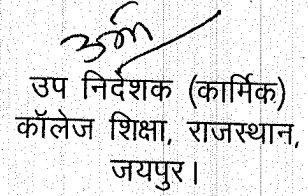 उप निर्देशक (कार्मिक)
कॉलेज शिक्षा, राजस्थान,
जयपुर।